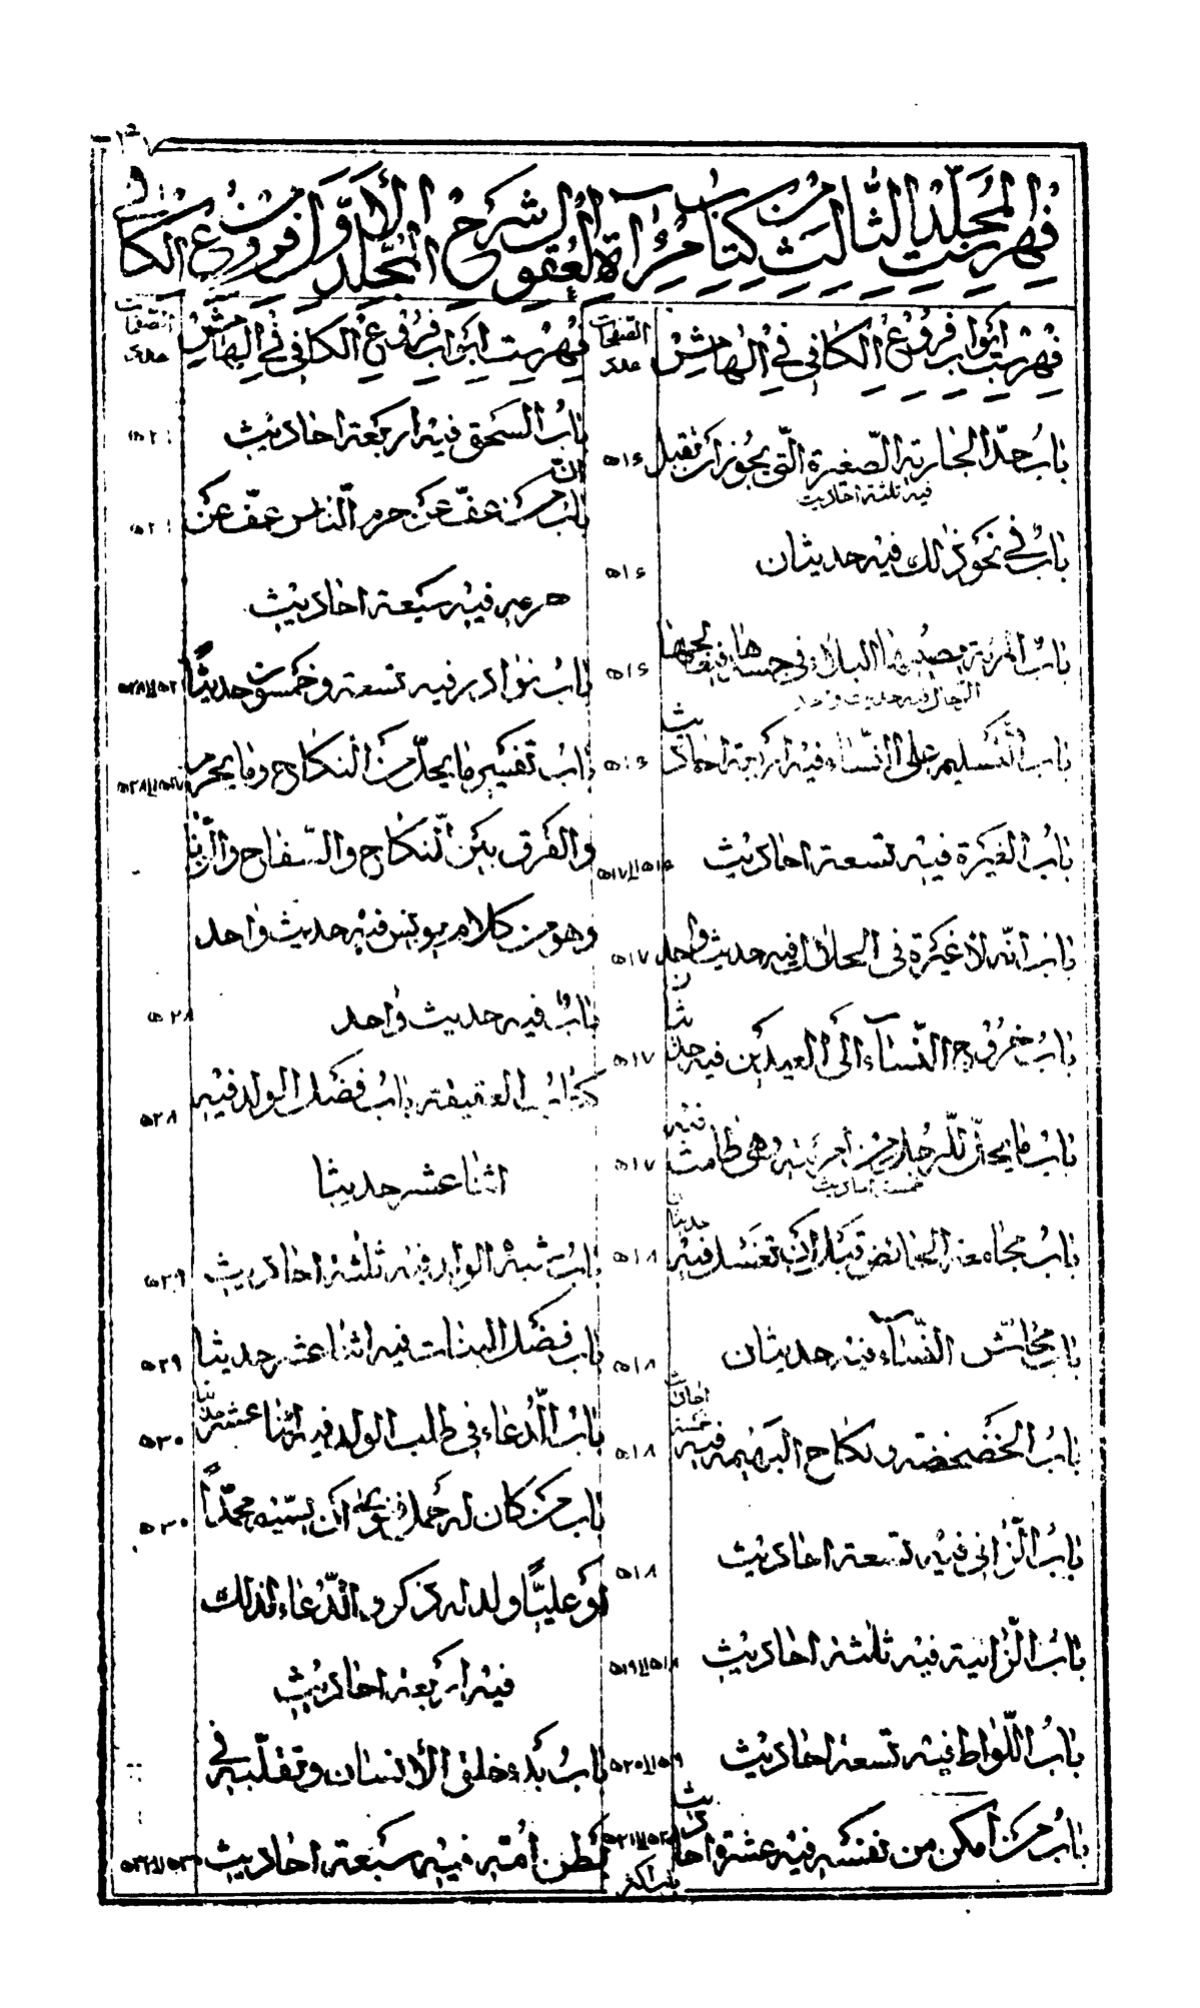 فهرست المجلد الثالث من كتاب مرآة العقول شرح المجلد الأول من فروع الكافي
فهرست ابواب فروع الكافي في الهامش
الصفحات
عدد
باب حد الجارية الصغيرة التي يجوز ان تقبل
فيه ثلثة احاديث
٥١٤
باب في نحو ذلك فيه حديثان
٥١٤
باب المرئة يصيبها البلاء في جسدها فيعالجها
الرجال فيه حديث واحد
٥١٤
باب التسليم على النساء فيه اربعة احاديث
٥١٤
باب الغيرة فيه تسعة احاديث
٥١٦الى٥١٧
باب انه لا غيرة في الحلال فيه حديث واحد
٥١٧
باب خروج النساء الى العيدين فيه حديثان
٥١٧
باب ما يحل للرجل من امرئته وهى طامث فيه
خمسة احاديث
٥١٧
باب مجامعة الحائض قبل ان تغتسل فيه حديثان
٥١٨
باب محاش النساء فيه حديثان
٥١٨
باب الخضخضة ونكاح البهيمة فيه خمسة احاديث
٥١٨
باب الزاني فيه تسعة احاديث
٥١٨
باب الزانية فيه ثلثة احاديث
٥١٨الى٥١٩
باب اللواط فيه تسعة احاديث
٥١٩الى٥٢٠
باب من امكن من نفسه فيه عشرة احاديث
٥٢٠الى٥٢١
فهرست ابواب فروع الكافي في الهامش
الصفحات
عدد
باب السحق فيه اربعة احاديث
باب ان من عف عن حرم الناس عف عن
حرمه فيه سبعة احاديث
باب نوادر فيه تسعة وخمسون حديثا
باب تفسير ما يحل من النكاح وما يحرم
والفرق بين النكاح والسفاح والزنا
وهو من كلام يونس فيه حديث واحد
باب فيه حديث واحد
٥٢٨
كتاب العقيقة باب فضل الولد فيه
٥٢٨
اثنا عشر حديثا
باب شبه الولد فيه ثلثة احاديث
٥٢٩
باب فضل البنات فيه اثنا عشر حديثا
٥٢٩
باب الدعاء في طلب الولد فيه اثنا عشر حديثا
٥٣٠
باب من كان له حمل فنوى ان يسميه محمدا
٥٣٠
او عليا ولد له ذكر والدعاء لذلك
فيه اربعة احاديث
باب بدء خلق الانسان وتقلبه في
بطن امه فيه سبعة احاديث
باب اكثر